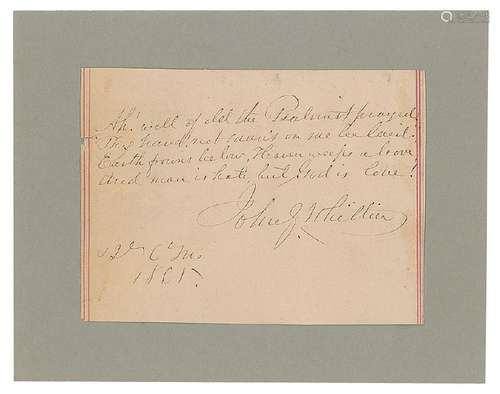 Ah! well of old the Psalmist prayed
"Thy hand, not man's on me be laid!"
Earth frowns below, Heaven weeps above,
And man is hate but God is love!
John G. Whittier